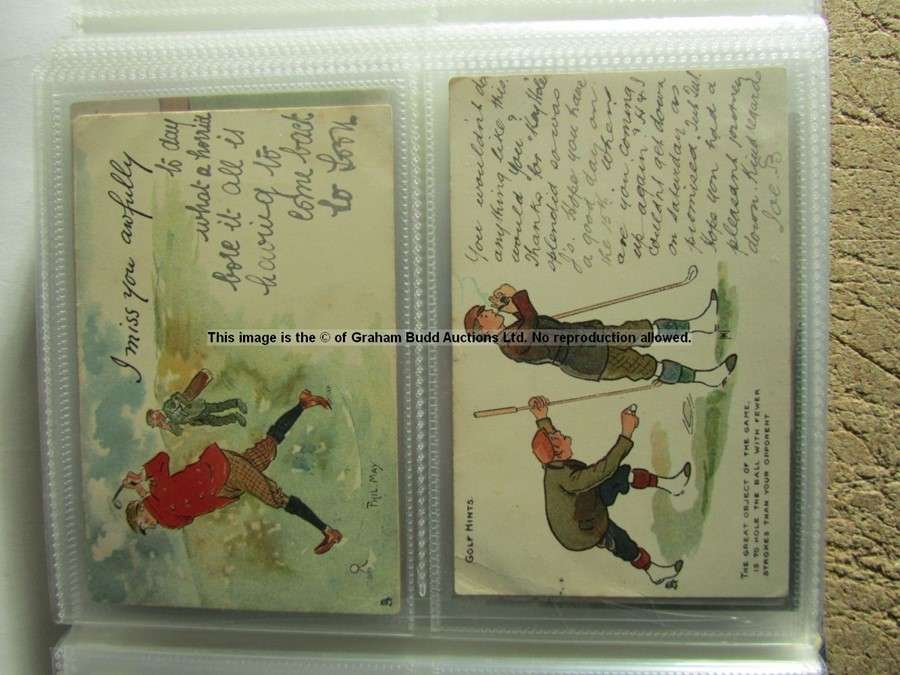 I miss you awfully
to day
what a horrid
bore it all is
having to
come back
so soon
PHIL MAY
You wouldn't do
anything like this.
would you?
Thanks for "Key Hole"
splendid so was
J's. Hope you have
a good day on
the 15th. When
are you coming
up again? H & I
couldn't get down
on Saturday as
promised, Tut Tut.
Hope you had a
pleasant journey
down. Kind regards
Joe. B.
GOLF HINTS.
THE GREAT OBJECT OF THE GAME,
IS TO HOLE THE BALL WITH FEWER
STROKES THAN YOUR OPPONENT
This image is the © of Graham Budd Auctions Ltd. No reproduction allowed.